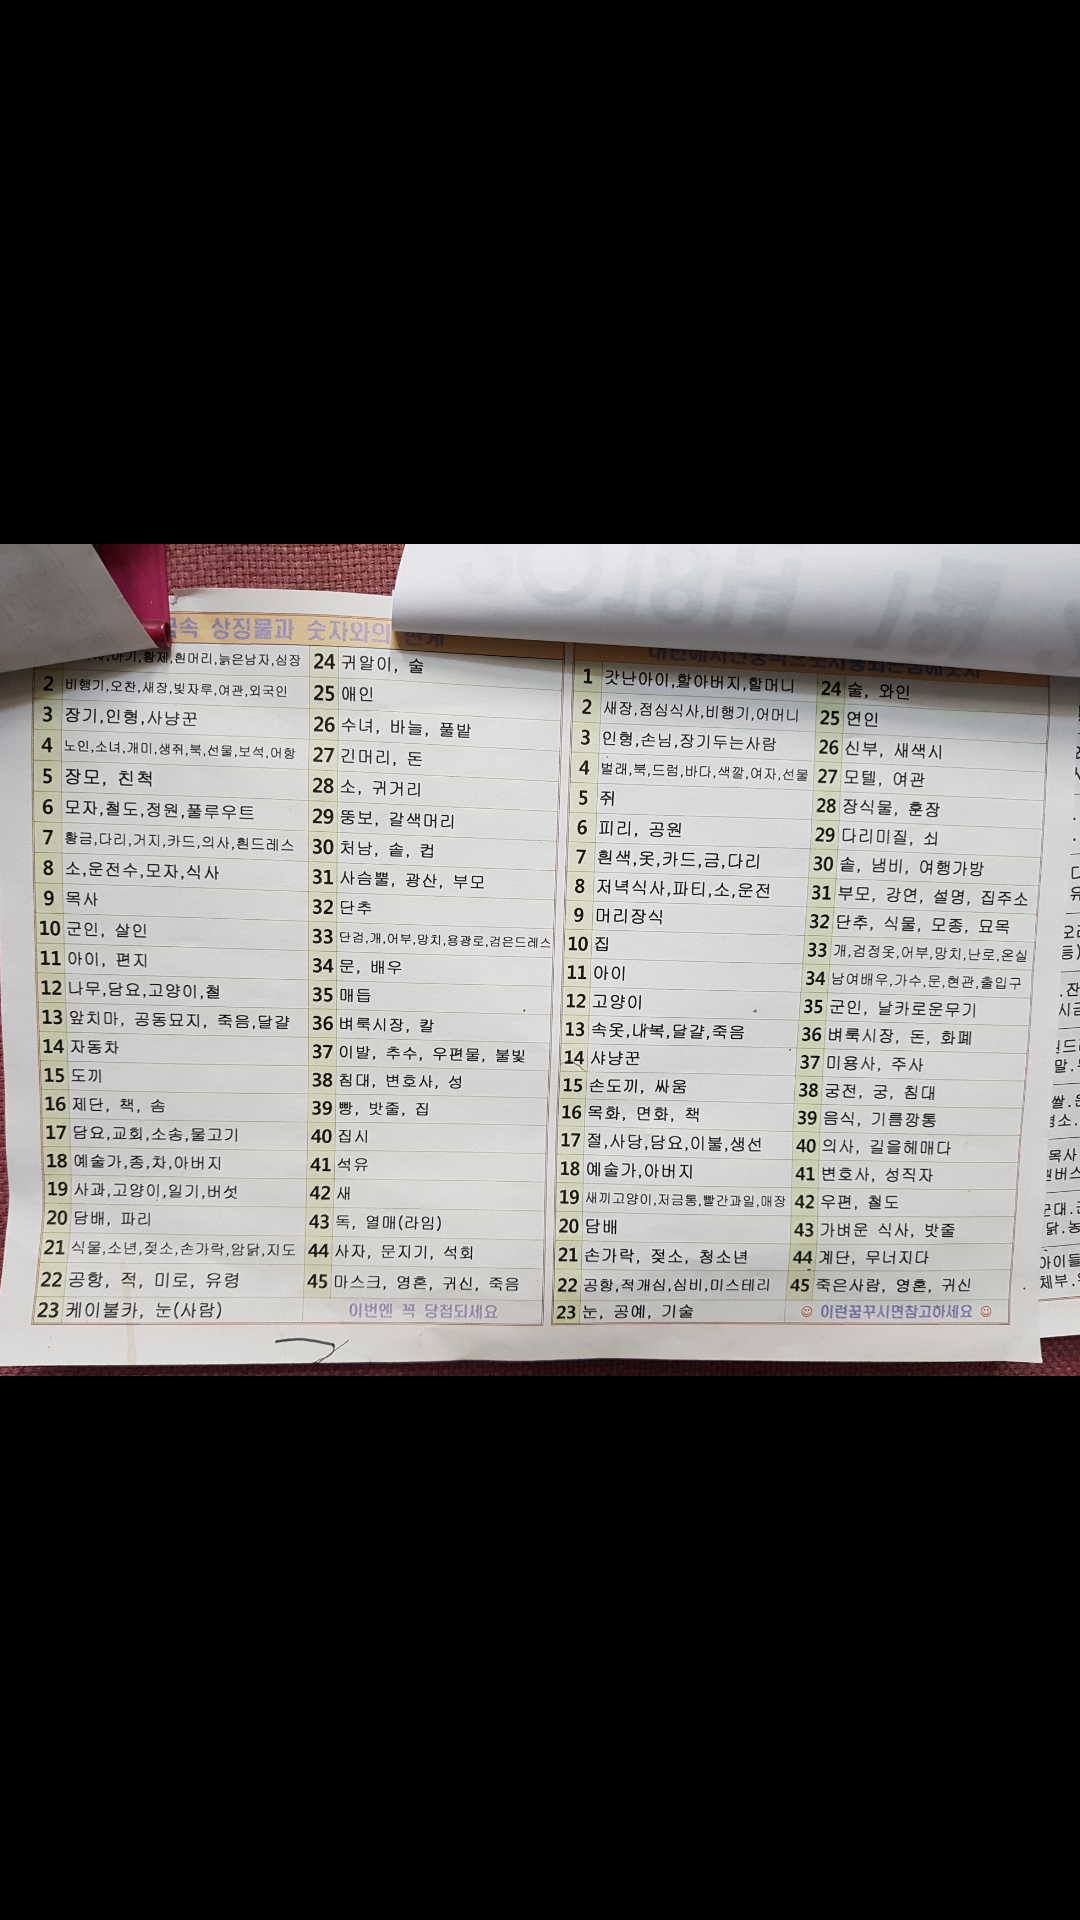 상징물과 숫자와의
황제,흰머리,늙은남자,심장
2 비행기,오찬,새장,빗자루,여관,외국인
3 장기,인형,사냥꾼
4 노인,소녀,개미,생쥐,북,선물,보석,어항
5 장모, 친척
6 모자,철도,정원,풀루우트
7 황금,다리,거지,카드,의사,흰드레스
8 소,운전수,모자,식사
9 목사
10 군인, 살인
11 아이, 편지
12 나무,담요,고양이,철
13 앞치마, 공동묘지, 죽음,달걀
14 자동차
15 도끼
16 제단, 책, 솜
17 담요,교회,소송,물고기
18 예술가,종,차,아버지
19 사과,고양이,일기,버섯
20 담배, 파리
21 식물,소년,젖소,손가락,암닭,지도
22 공항, 적, 미로, 유령
23 케이불카, 눈(사람)
24 귀알이, 술
25 애인
26 수녀, 바늘, 풀밭
27 긴머리, 돈
28 소, 귀거리
29 뚱보, 갈색머리
30 처남, 솥, 컵
31 사슴뿔, 광산, 부모
32 단추
33 단검,개,어부,망치,용광로,검은드레스
34 문, 배우
35 매듭
36 벼룩시장, 칼
37 이발, 추수, 우편물, 불빛
38 침대, 변호사, 성
39 빵, 밧줄, 집
40 집시
41 석유
42 새
43 독, 열매(라임)
44 사자, 문지기, 석회
45 마스크, 영혼, 귀신, 죽음
이번엔 꼭 당첨되세요
1 갓난아이,할아버지,할머니
2 새장,점심식사,비행기,어머니
3 인형,손님,장기두는사람
4 벌래,북,드럼,바다,색깔,여자,선물
5 쥐
6 피리, 공원
7 흰색,옷,카드,금,다리
8 저녁식사,파티,소,운전
9 머리장식
10 집
11 아이
12 고양이
13 속옷,내복,달걀,죽음
14 사냥꾼
15 손도끼, 싸움
16 목화, 면화, 책
17 절,사당,담요,이불,생선
18 예술가,아버지
19 새끼고양이,저금통,빨간과일,매장
20 담배
21 손가락, 젖소, 청소년
22 공항,적개심,심비,미스테리
23 눈, 공예, 기술
24 술, 와인
25 연인
26 신부, 새색시
27 모텔, 여관
28 장식물, 훈장
29 다리미질, 쇠
30 솥, 냄비, 여행가방
31 부모, 강연, 설명, 집주소
32 단추, 식물, 모종, 묘목
33 개,검정옷,어부,망치,난로,온실
34 남여배우,가수,문,현관,출입구
35 군인, 날카로운무기
36 벼룩시장, 돈, 화폐
37 미용사, 주사
38 궁전, 궁, 침대
39 음식, 기름깡통
40 의사, 길을헤매다
41 변호사, 성직자
42 우편, 철도
43 가벼운 식사, 밧줄
44 계단, 무너지다
45 죽은사람, 영혼, 귀신
☺ 이런꿈꾸시면참고하세요 ☺